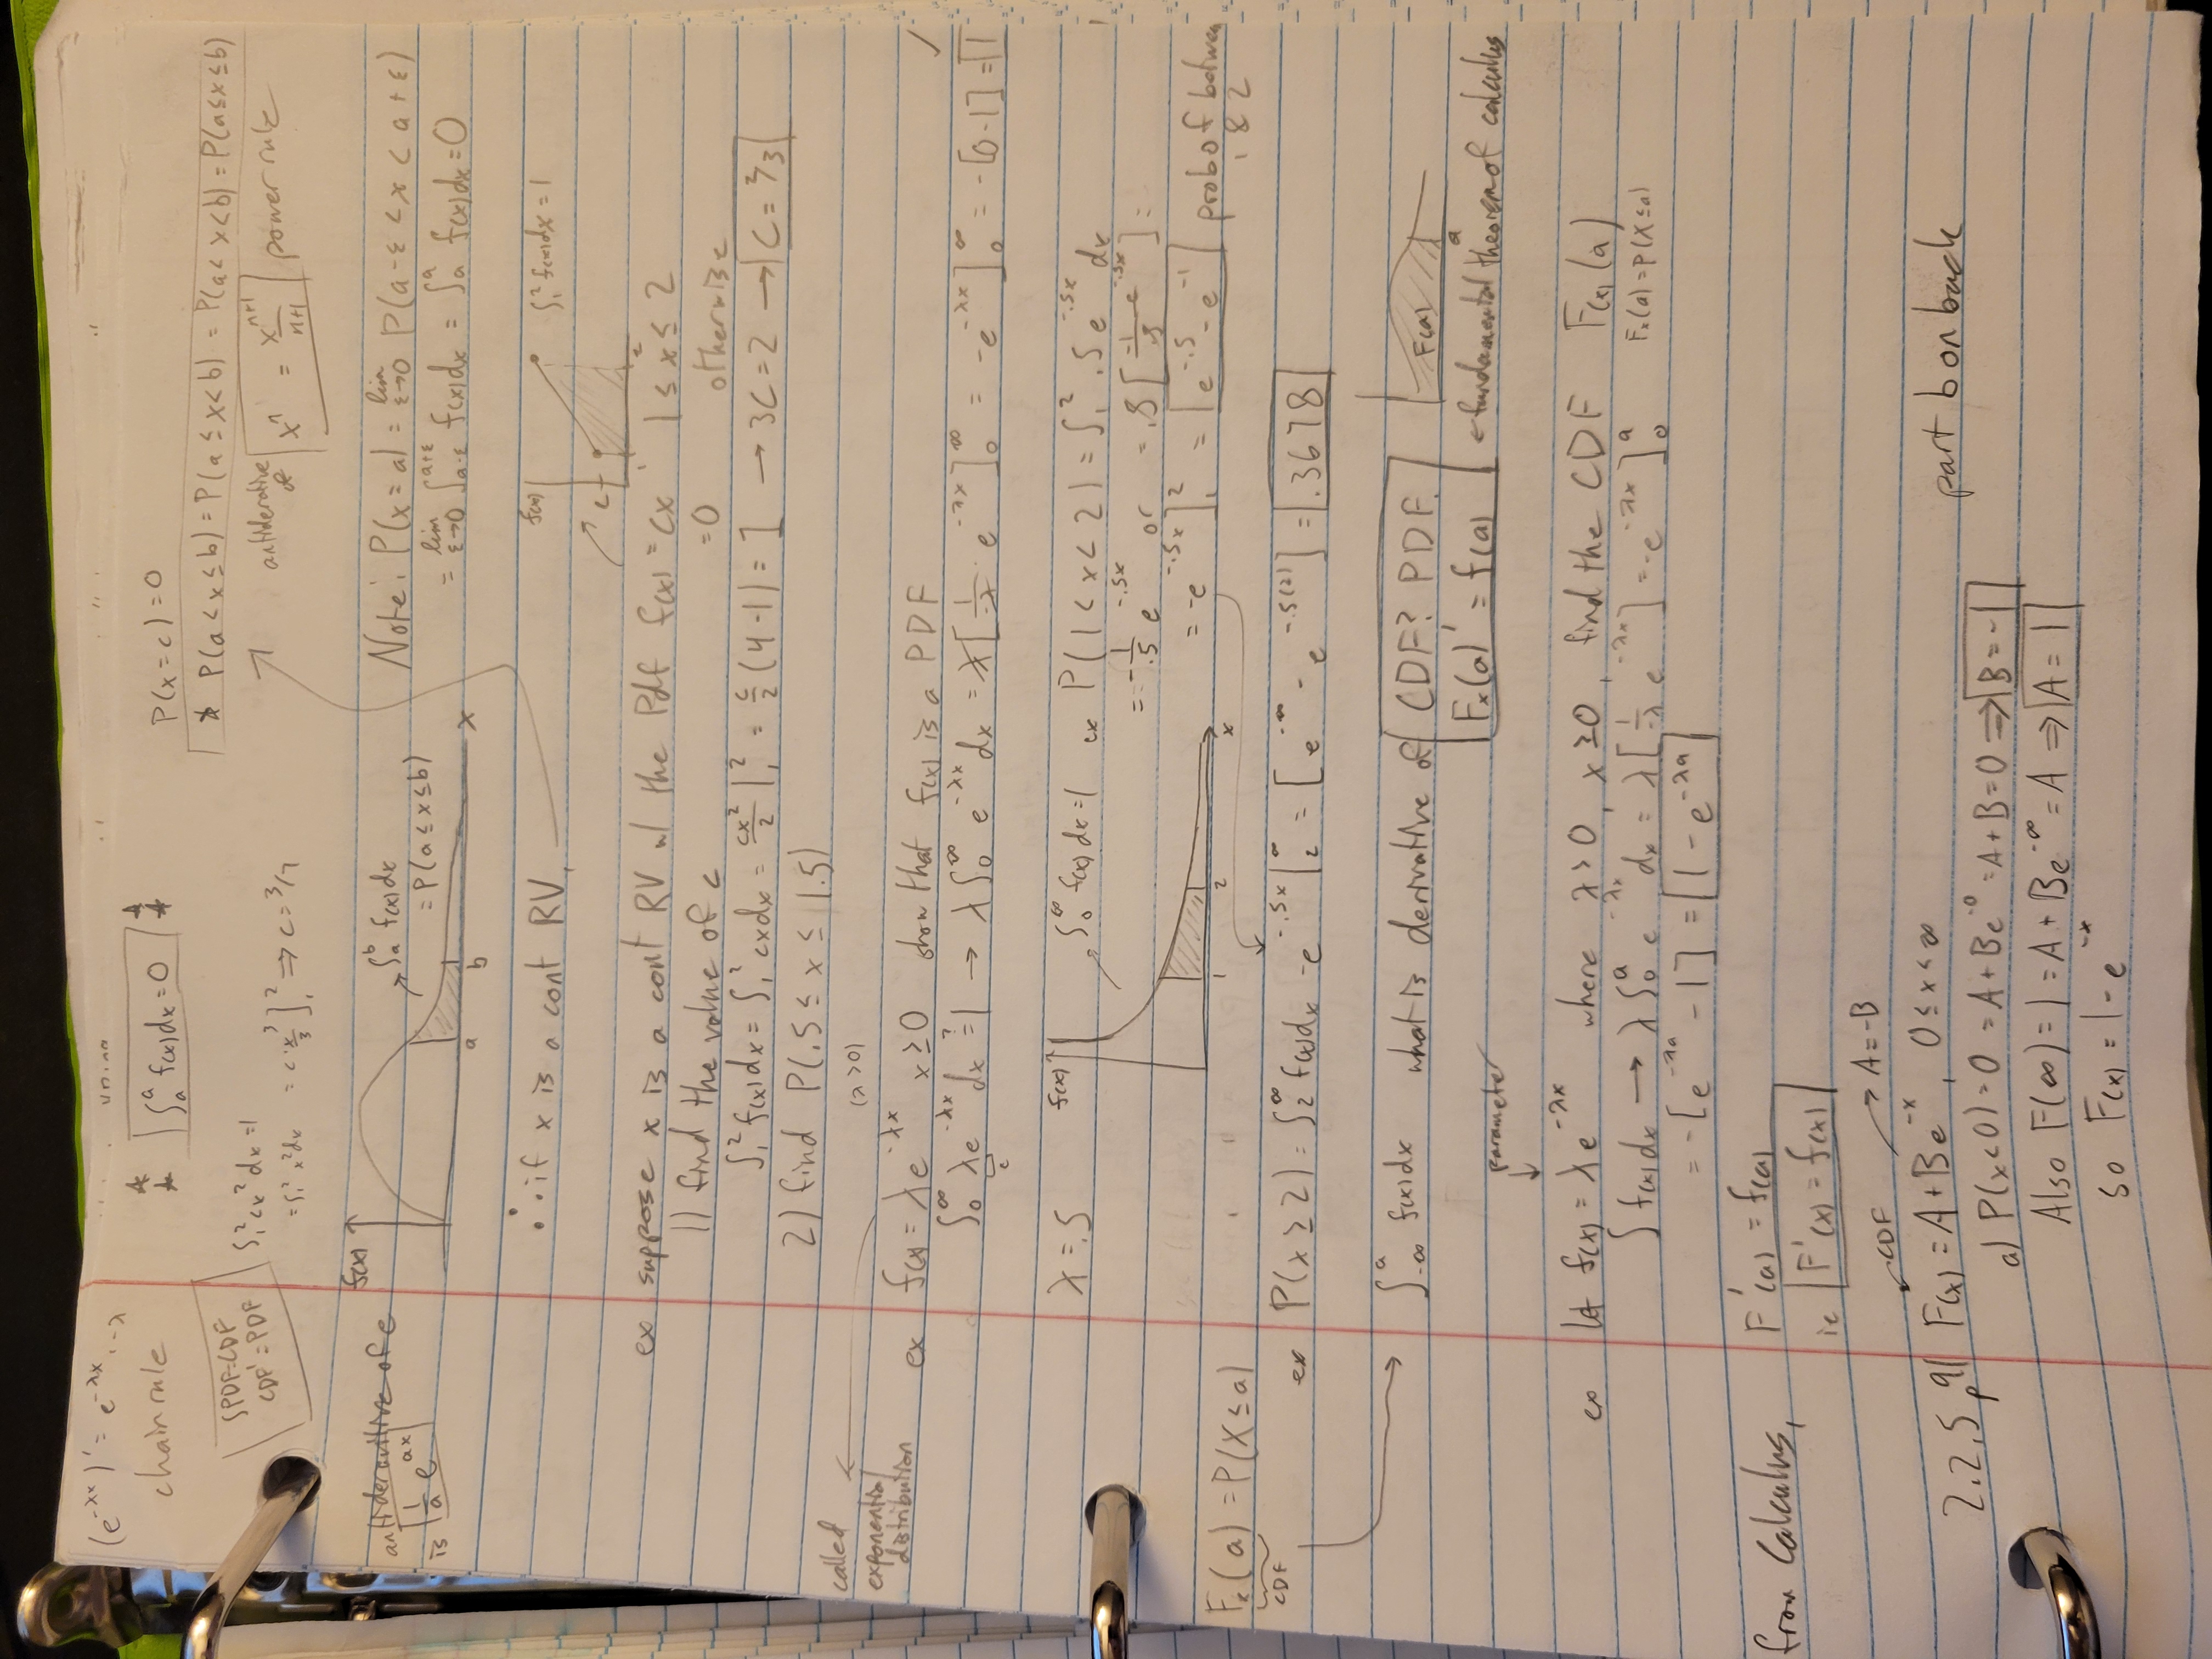 (e^-λx)' = e^-λx · -λ
chain rule
∫_a^a f(x)dx = 0
P(x=c) = 0
* P(a<x≤b) = P(a≤x<b) = P(a<x<b) = P(a≤x≤b)
∫PDF=CDF
CDF'=PDF
∫_1^2 cx^2 dx = 1
= ∫_1^2 x^2 dx = c·x^3/3 ]_1^2 ⇒ c = 3/7
antiderative of x^n = x^(n+1)/(n+1) power rule
antideravitive of e
is 1/a e^ax
f(x)
∫_a^b f(x)dx
= P(a≤x≤b)
a b x
Note: P(x=a) = lim ε→0 P(a-ε<x<a+ε)
= lim ε→0 ∫_a-ε^a+ε f(x)dx = ∫_a^a f(x)dx = 0
∴ if x is a cont RV,
f(x) ∫_1^2 f(x)dx = 1
c
1 2
ex suppose x is a cont RV w/ the Pdf f(x) = cx 1≤x≤2
1) find the value of c = 0 otherwise
∫_1^2 f(x)dx = ∫_1^2 cxdx = cx^2/2 |_1^2 = c/2 (4-1) = 1 → 3C=2 → C=2/3
2) find P(.5≤x≤1.5)
called
exponential
distribution
(λ>0)
ex f(x) = λe^-λx x≥0 show that f(x) is a PDF
∫_0^∞ λe^-λx dx ?= 1 → λ∫_0^∞ e^-λx dx = λ[1/-λ · e^-λx]_0^∞ = -e^-λx]_0^∞ = -[0-1] = 1 ✓
c
λ=.5
f(x)
∫_0^∞ f(x)dx=1
1 2 x
ex P(1<x<2) = ∫_1^2 .5e^-.5x dx
= -1/.5 e^-.5x or = .5[-1/.5 e^-.5x] =
= -e^-.5x]_1^2 = e^-.5 - e^-1 prob of between
1 & 2
F_x(a) = P(X≤a)
CDF
ex P(x≥2) = ∫_2^∞ f(x)dx -e^-.5x |_2^∞ = [e^-∞ - e^-.5(2)] = .3678
∫_-∞^a f(x)dx what is derivative of CDF? PDF.
F_x(a)' = f(a) ← fundamental theorem of calculus
F(a)
a
parameter
ex let f(x) = λe^-λx where λ>0, x≥0, find the CDF F(x)(a)
∫f(x)dx → λ∫_0^a e^-λx dx = λ[1/-λ e^-λx] = -e^-λx]_0^a F_x(a)=P(X≤a)
= -[e^-λa - 1] = 1-e^-λa
from Calculus, F'(a) = f(a)
ie F'(x) = f(x)
CDF → A=-B
2.2.5 p91 F(x) = A+Be^-x, 0≤x<∞ part b on back
a) P(x<0) = 0 = A+Be^-0 = A+B=0 ⇒ B=-1
Also F(∞) = 1 = A+Be^-∞ = A ⇒ A=1
so F(x) = 1-e^-x